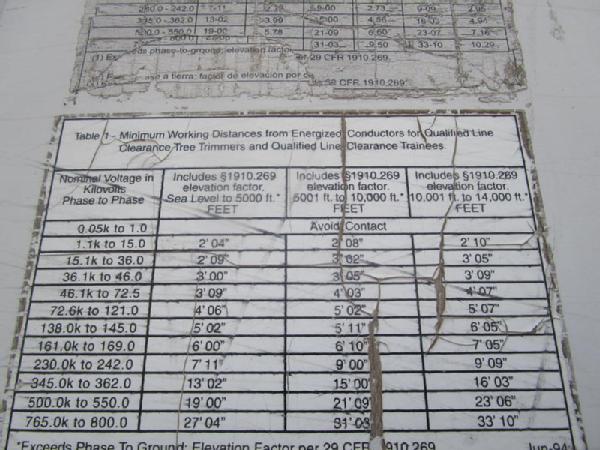 260.0 - 242.0 2.39 9-00 2.73 9-09 2.95
345.0 - 362.0 13-02 3.99 15-00 4.56 16-03 4.94
500.0 - 550.0 19-00 5.78 21-09 6.60 23-07 7.16
31-03 9.50 33-10 10.29
phase-to-ground; elevation factor per 29 CFR 1910.269.
a tierra: factor de elevación por 29 CFR 1910.269
Table 1 - Minimum Working Distances from Energized Conductors for Qualified Line
Clearance Tree Trimmers and Qualified Line Clearance Trainees
Nominal Voltage in Kilovolts Phase to Phase
Includes §1910.269 elevation factor. Sea Level to 5000 ft.* FEET
Includes §1910.269 elevation factor. 5001 ft. to 10,000 ft.* FEET
Includes §1910.269 elevation factor. 10,001 ft. to 14,000 ft.* FEET
0.05k to 1.0 Avoid Contact
1.1k to 15.0 2' 04" 2' 08" 2' 10"
15.1k to 36.0 2' 09" 3' 02" 3' 05"
36.1k to 46.0 3' 00" 3' 05" 3' 09"
46.1k to 72.5 3' 09" 4' 03" 4' 07"
72.6k to 121.0 4' 06" 5' 02" 5' 07"
138.0k to 145.0 5' 02" 5' 11" 6' 05"
161.0k to 169.0 6' 00" 6' 10" 7' 05"
230.0k to 242.0 7' 11" 9' 00" 9' 09"
345.0k to 362.0 13' 02" 15' 00" 16' 03"
500.0k to 550.0 19' 00" 21' 09" 23' 06"
765.0k to 800.0 27' 04" 31' 03" 33' 10"
*Exceeds Phase To Ground: Elevation Factor per 29 CFR 1910.269 Jun-94